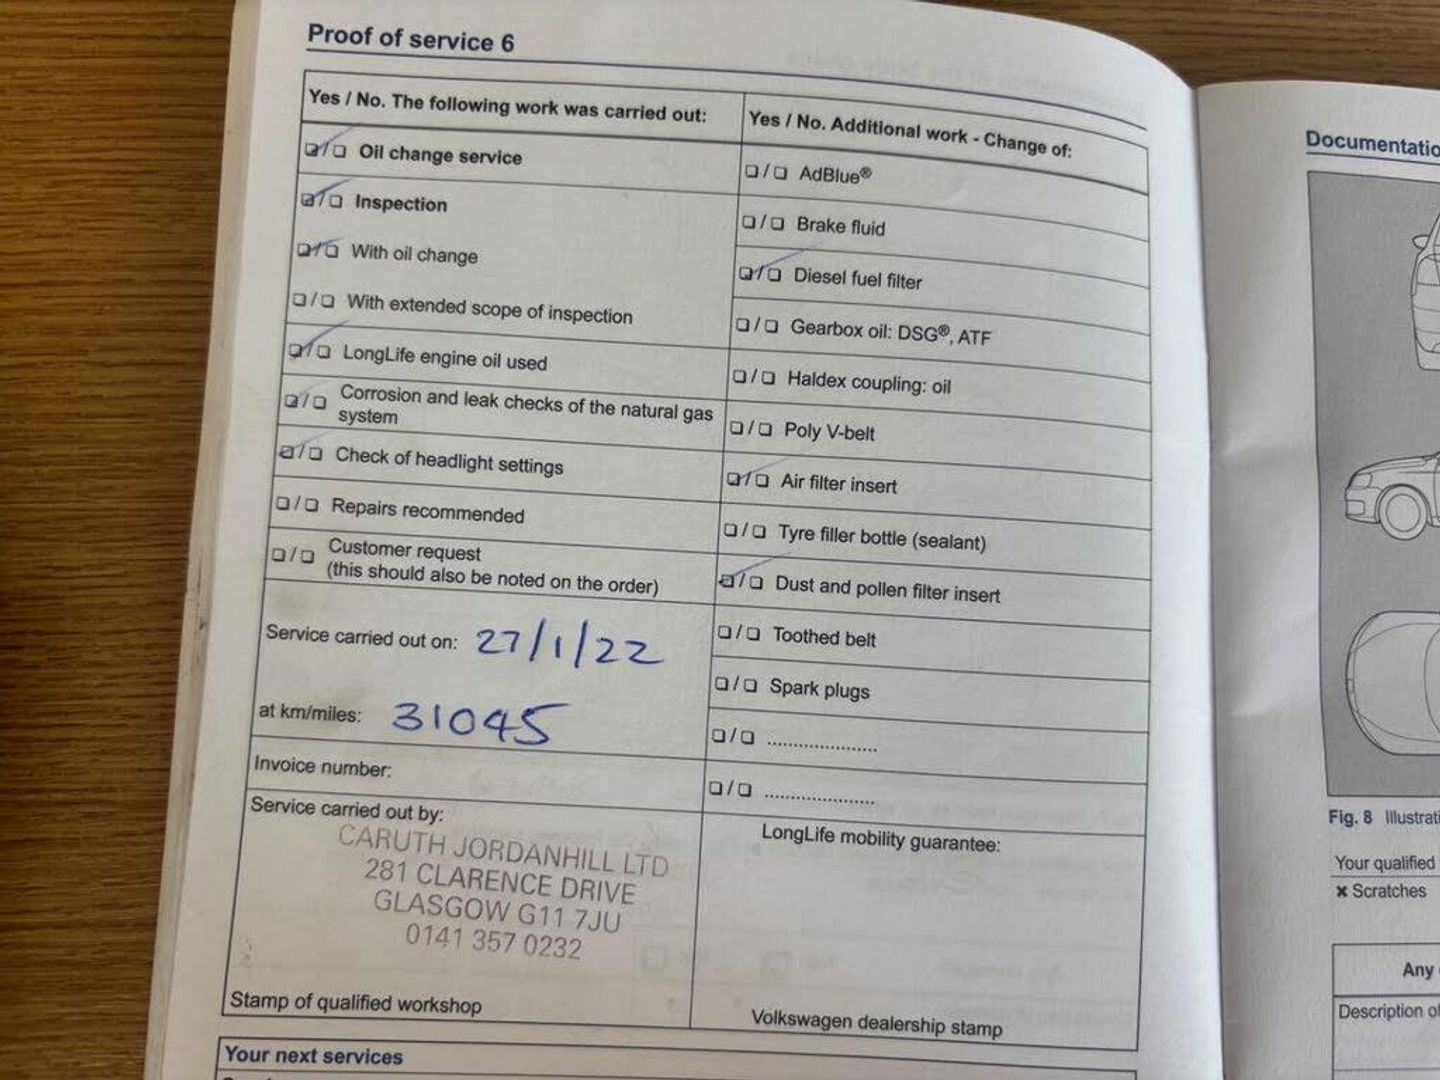 Proof of service 6
Yes / No. The following work was carried out:
❏/❏ Oil change service
❏/❏ Inspection
❏/❏ With oil change
❏/❏ With extended scope of inspection
❏/❏ LongLife engine oil used
❏/❏ Corrosion and leak checks of the natural gas
system
❏/❏ Check of headlight settings
❏/❏ Repairs recommended
❏/❏ Customer request
(this should also be noted on the order)
Service carried out on: 27/1/22
at km/miles: 31045
Invoice number:
Service carried out by:
CARUTH JORDANHILL LTD
281 CLARENCE DRIVE
GLASGOW G11 7JU
0141 357 0232
Stamp of qualified workshop
Yes / No. Additional work - Change of:
❏/❏ AdBlue®
❏/❏ Brake fluid
❏/❏ Diesel fuel filter
❏/❏ Gearbox oil: DSG®, ATF
❏/❏ Haldex coupling: oil
❏/❏ Poly V-belt
❏/❏ Air filter insert
❏/❏ Tyre filler bottle (sealant)
❏/❏ Dust and pollen filter insert
❏/❏ Toothed belt
❏/❏ Spark plugs
❏/❏ .....................
❏/❏ .....................
LongLife mobility guarantee:
Volkswagen dealership stamp
Your next services
Documentatio
Fig. 8 Illustrati
Your qualified
✖ Scratches
Any
Description of